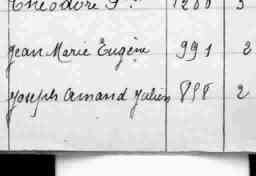 Théodore 1200 3
Jean Marie Eugène 991 2
Joseph Amand Julien 898 2